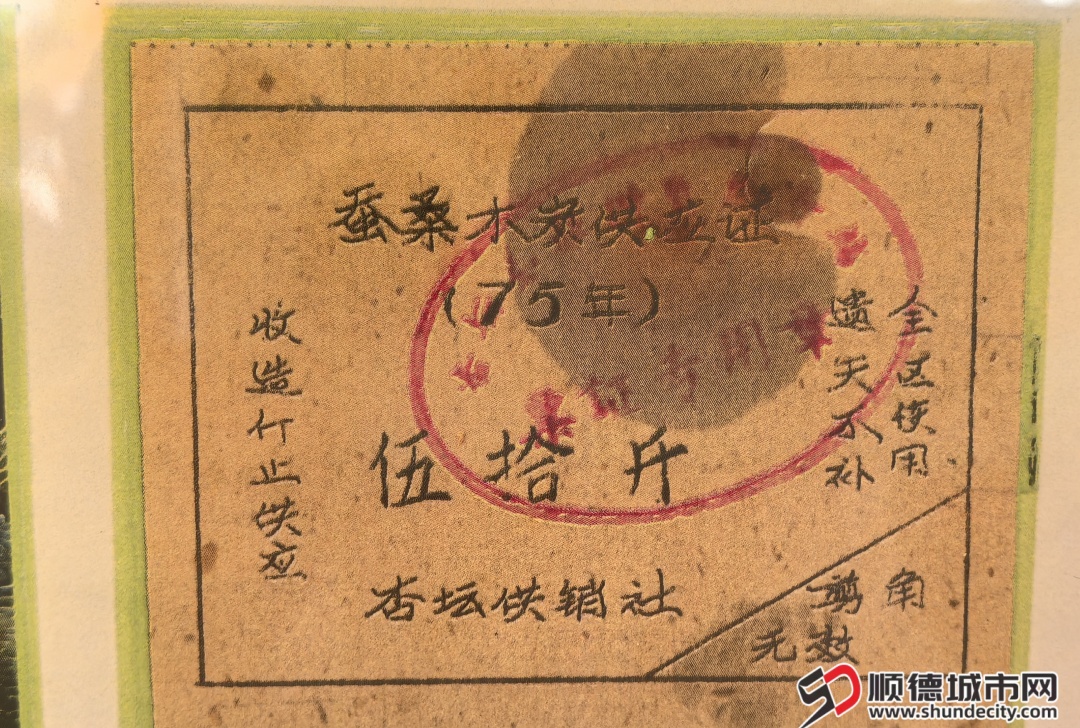 蚕桑木炭供应证
(75年)
伍拾斤
杏坛供销社
收造仃止供应
全区使用
遗失不补
剪角
无效
证专用章
顺德城市网
www.shundecity.com